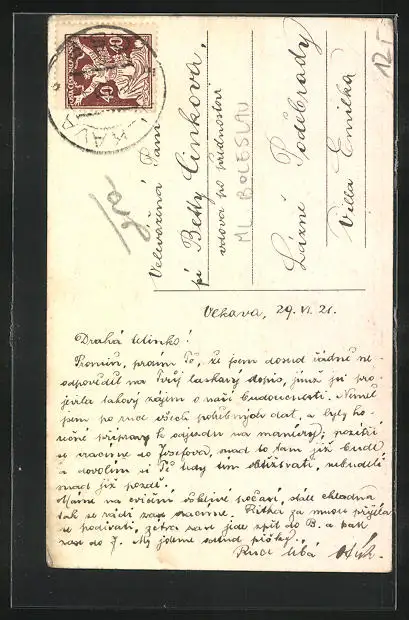 Velevážená Paní
pí Betty Cinková,
vdova po přednostovi
ML. BOLESLAV
Lázně Poděbrady
Villa Emilka
12
40 40
Vlkava, 29. VI. 21.
Drahá tetinko!
Promiň, prosím Tě, že jsem dosud řádně ne-
odpověděl na Tvůj laskavý dopis, jímž jsi pro-
jevila takový zájem o naši budoucnost. Neměl
jsem po ruce všech potřebných dat, a byly ko-
nečné přípravy k odjezdu na manévry; pozítří
se vracíme do Josefova, snad to tam již bude
a dovolím si Tě tedy tím obtěžovati, nebudeli
snad již pozdě.
Máme na cvičení ošklivé počasí, stále chladno
tak se rádi zase vracíme. Ritka za mnou přijela
se podívati, zítra zase jede zpět do B. a pak
zase do J. My jdeme pěšky.
Ruce líbá